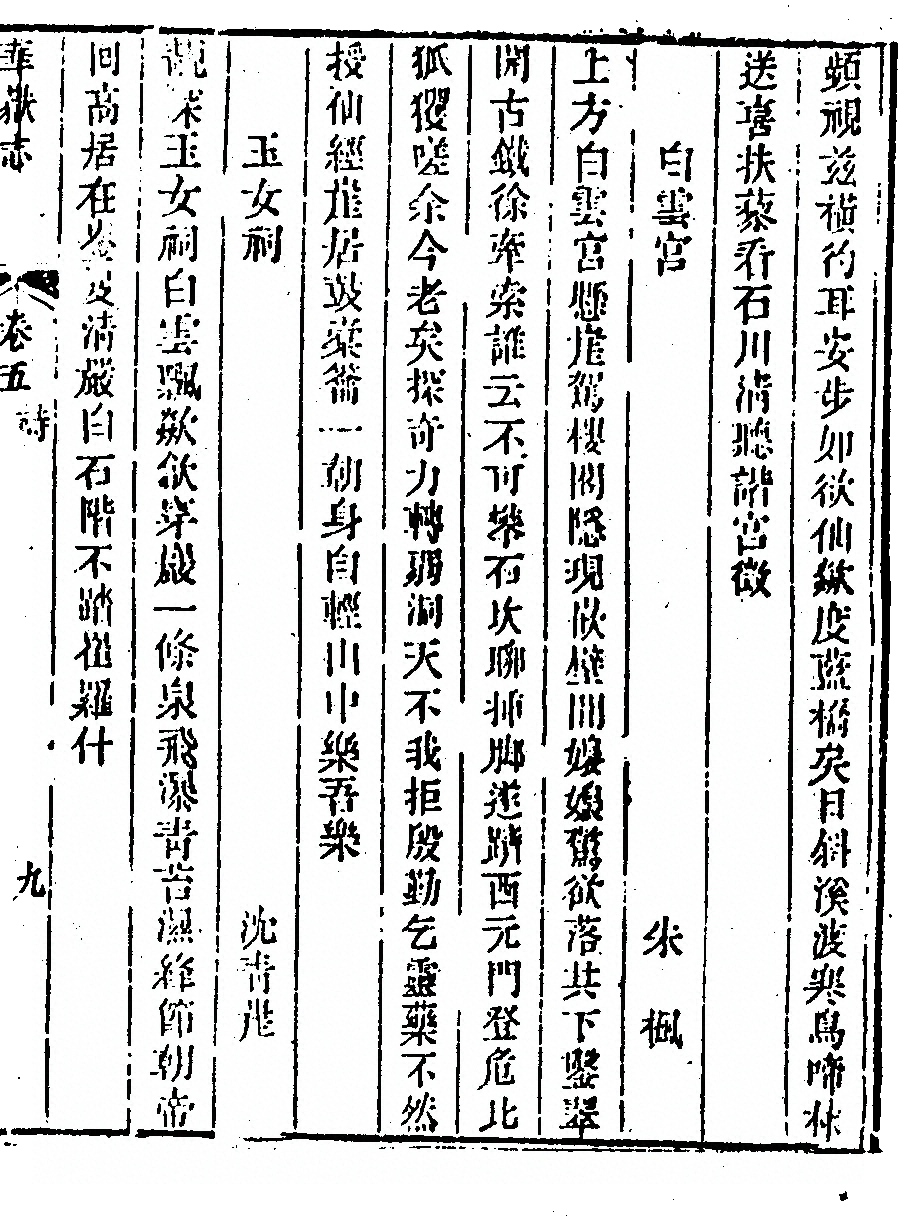 頻視玆橫彴耳安步如欲仙緱度藍橋矣日斜溪波寒鳥啼林
送喜扶藜看石川淸聽諧宮徵
白雲宮　朱　楓
上方白雲宮懸崖駕樓閣隱現欹壁間嫂嫂驚欲落共下鑿翠
開古鐵徐牽索誰云不可攀石坎聊揷脚逆躋西元門登危比
狐玃嗟余今老矣探奇力轉弱洞天不我拒殷勤乞靈藥不然
授仙經崖居鼓橐籥一朝身自輕山中樂吾樂
玉女祠　沈靑崖
玉女祠白雲飄歘歘穿巖一條泉飛瀑靑苔濕絳節朝帝
回高居在 淸嚴白石階不踏崔羅什
華嶽志　卷五　詩　九